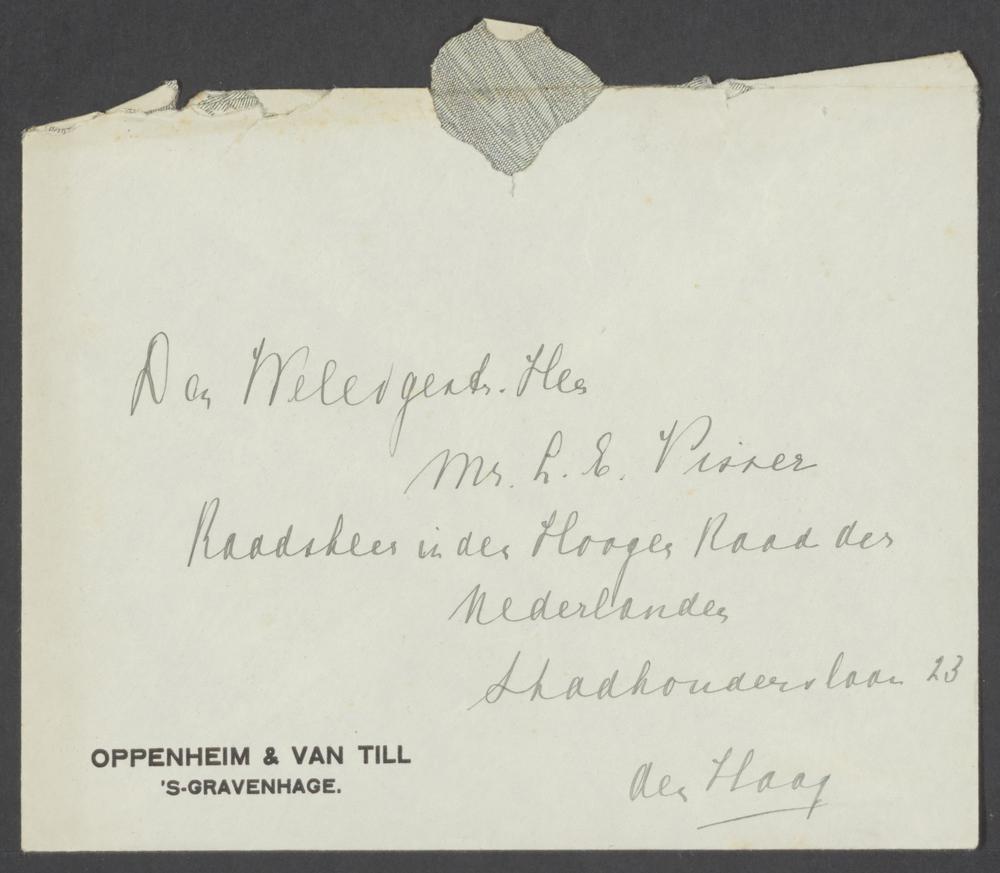 Den Weledgestr. Heer
Mr. L. E. Visser
Raadsheer in den Hoogen Raad der
Nederlanden
Stadhouderslaan 23
den Haag
OPPENHEIM & VAN TILL
'S-GRAVENHAGE.